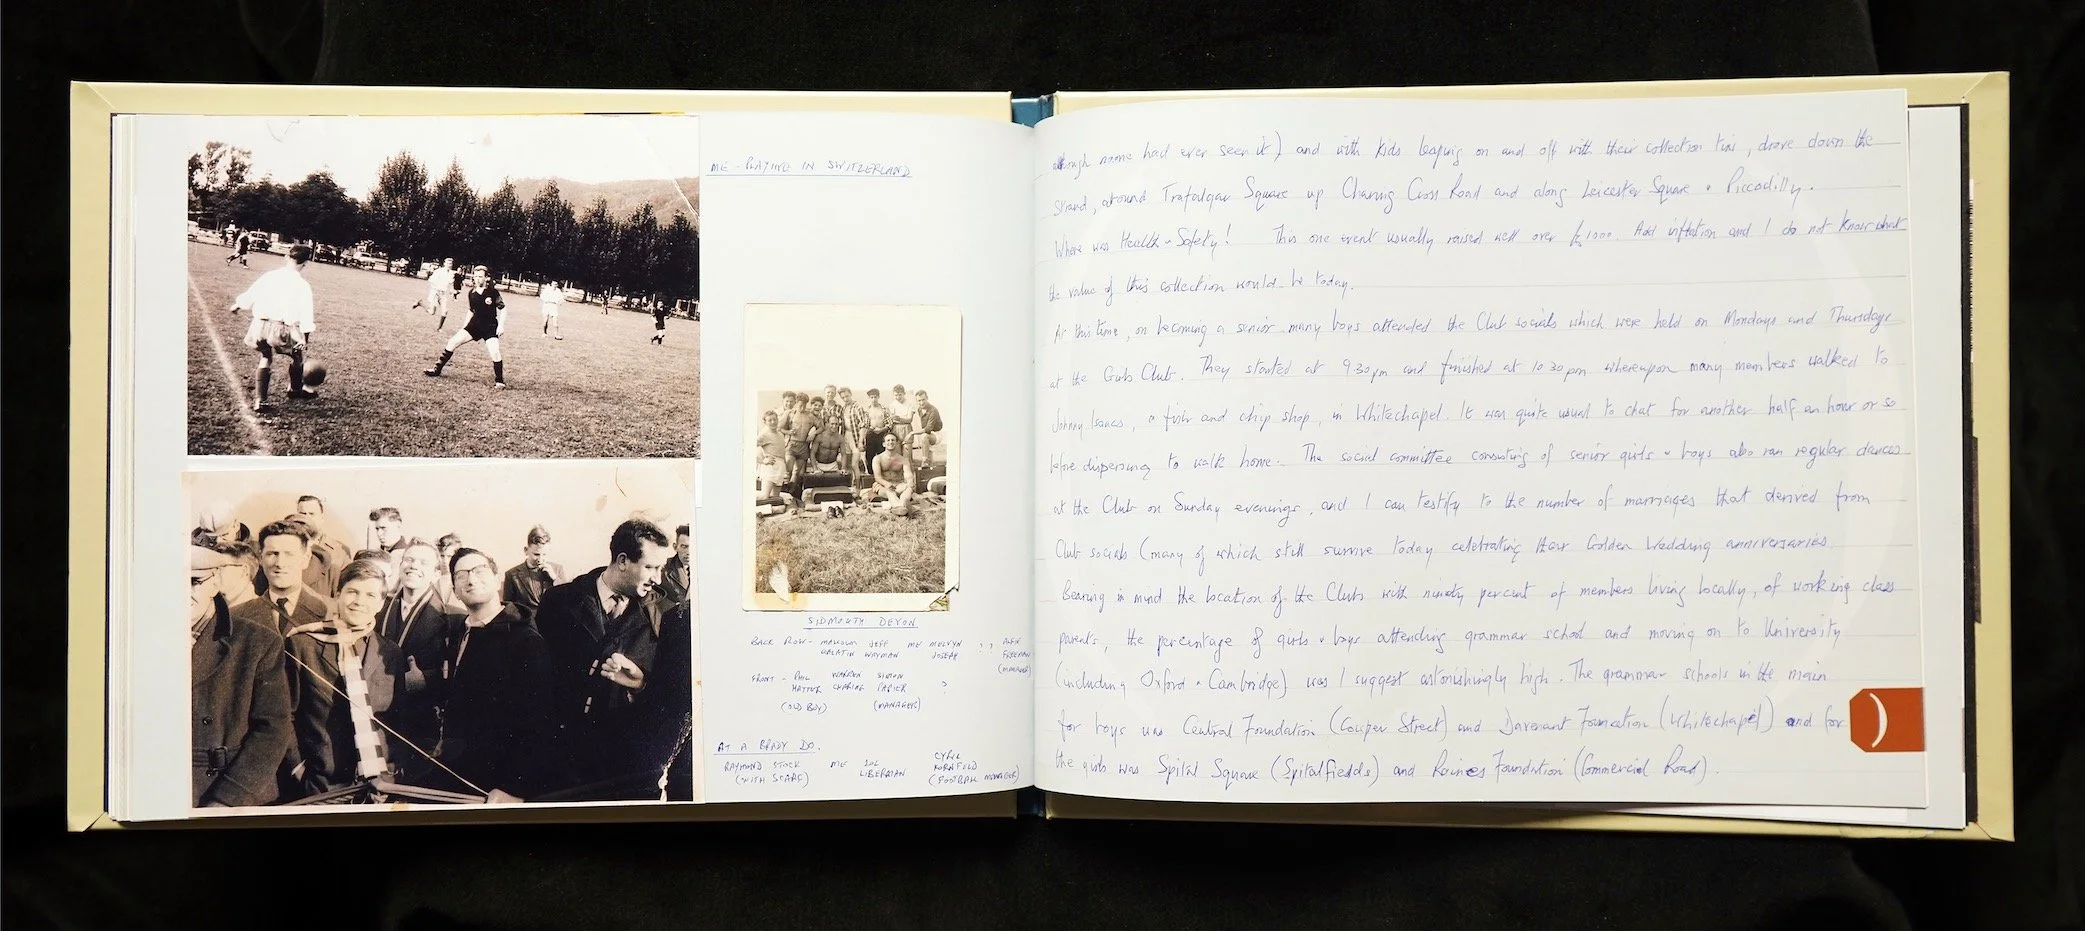 ME - PLAYING IN SWITZERLAND
SIDMOUTH DEVON
BACK ROW - MALCOLM JEFF ME MELVYN ? ? ALEX
GALATIN WAYMAN JOSEPH FREEMAN
(MANAGER)
FRONT - PHIL WARREN SIMON
MATTER PAPIER ?
(OLD BOY) (MANAGER)
AT A BRADY DO.
RAYMOND STOCK ME SOL CYRIL
(WITH SCARF) LIBERMAN KORNFELD
(FOOTBALL MANAGER)
although none had ever seen it) and with kids leaping on and off with their collection tins, drove down the
Strand, around Trafalgar Square up Charing Cross Road and along Leicester Square + Piccadilly.
Where was Health + Safety! This one event usually raised well over £1000. Add inflation and I do not know what
the value of this collection would be today.
At this time, on becoming a senior many boys attended the Club socials which were held on Mondays and Thursdays
at the Girls Club. They started at 9 30pm and finished at 10 30pm whereupon many members walked to
Johnny Isaacs, a fish and chip shop, in Whitechapel. It was quite usual to chat for another half an hour or so
before dispersing to walk home. The social committee consisting of senior girls + boys also ran regular dances
at the Club on Sunday evenings, and I can testify to the number of marriages that derived from
Club socials (many of which still survive today celebrating their Golden Wedding anniversaries
Bearing in mind the location of the Clubs with ninety percent of members living locally, of working class
parents, the percentage of girls + boys attending grammar school and moving on to University
(including Oxford + Cambridge) was I suggest astonishingly high. The grammar schools in the main
for boys was Central Foundation (Cowper Street) and Davenant Foundation (Whitechapel) and for
the girls was Spital Square (Spitalfields) and Raines Foundation (Commercial Road).